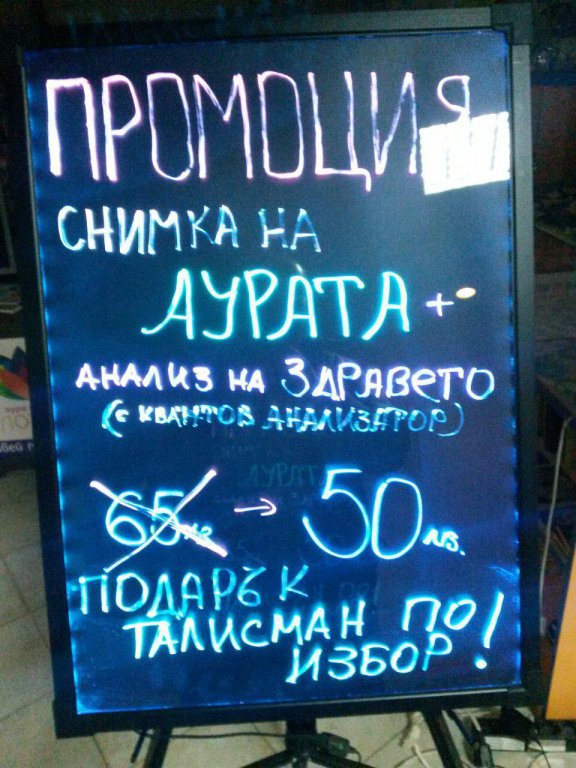 ПРОМОЦИЯ
СНИМКА НА
АУРАТА +
АНАЛИЗ НА ЗДРАВЕТО
(С КВАНТОВ АНАЛИЗАТОР)
65лв → 50лв.
ПОДАРЪК
ТАЛИСМАН ПО
ИЗБОР!